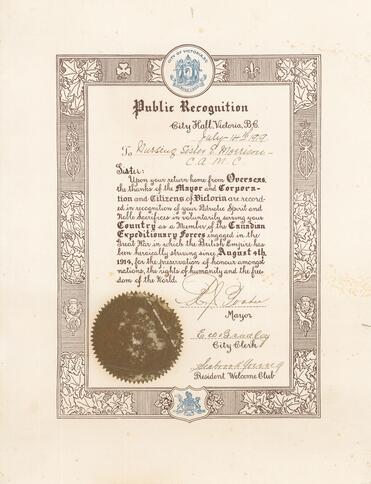 CITY OF VICTORIA B.C.
Public Recognition
City Hall, Victoria, B.C.
July 14th 1919
To Nursing Sister E. Morrison -
C. A. M. C
Sister:
Upon your return home from Overseas,
the thanks of the Mayor and Corpora-
tion and Citizens of Victoria are record-
ed in recognition of your Patriotic Spirit and
Noble Sacrifices in voluntarily serving your
Country as a Member of the Canadian
Expeditionary Forces engaged in the
Great War in which the British Empire has
been heroically striving since August 4th,
1914, for the preservation of honour amongst
nations, the rights of humanity and the free-
dom of the World.
R J Porter
Mayor
E. W. Bradley
City Clerk
Seabrook Young
President Welcome Club